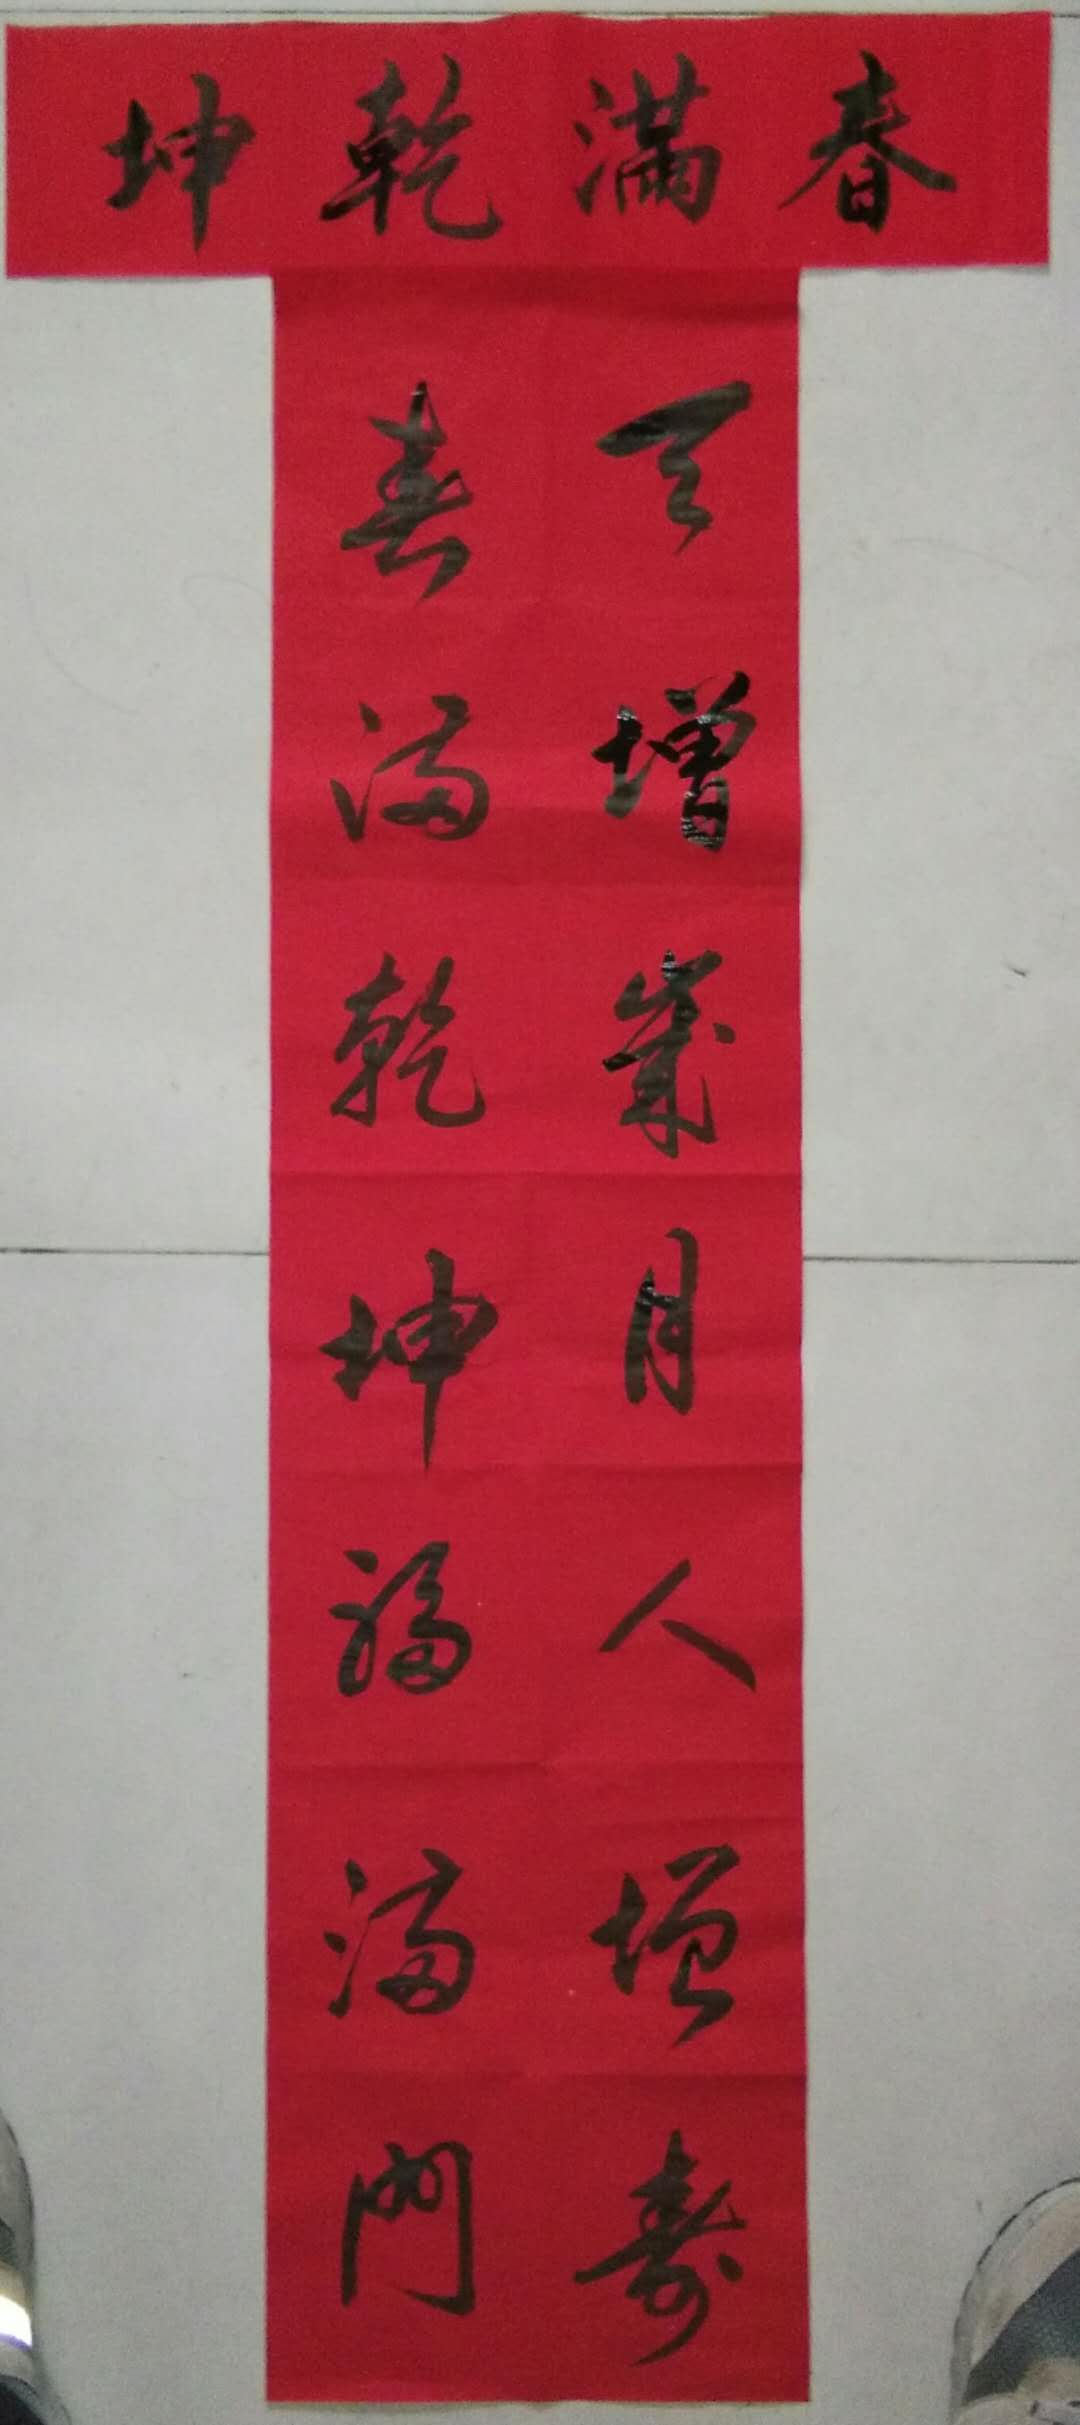 春滿乾坤
天增歲月人增壽
春滿乾坤福滿門